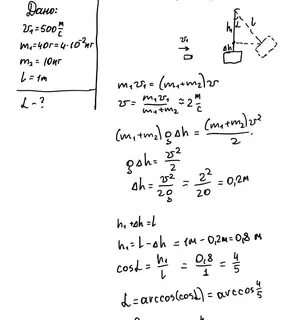 Дано:
v₁=500 м/с
m₁=40г=4·10⁻²кг
m₂=10кг
l=1м
L-?
v₁
h₁
Δh
L
l
m₁v₁=(m₁+m₂)v
v=m₁v₁/(m₁+m₂)≈2 м/с
(m₁+m₂)gΔh=(m₁+m₂)v²/2
gΔh=v²/2
Δh=v²/2g=2²/20=0,2м
h₁+Δh=l
h₁=l-Δh=1м-0,2м=0,8м
cosL=h₁/l=0,8/1=4/5
L=arccos(cosL)=arccos 4/5